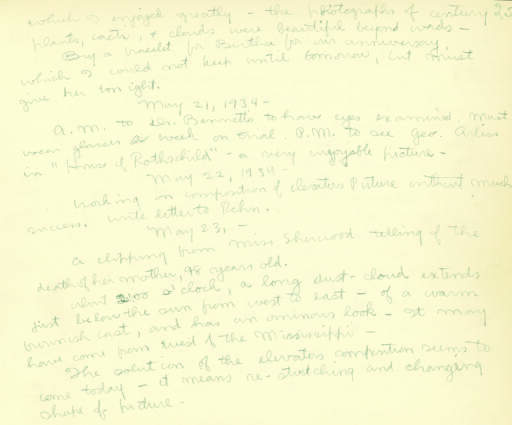 which I enjoyed greatly - the photographs of century 23
plants, cacti, + clouds were beautiful beyond words -
Buy a bracelet for Bertha for our anniversary,
which I could not keep until tomorrow, but must
give her tonight.
May 21, 1934 -
A.M. to Dr. Bennetts to have eyes examined. Must
wear glasses a week on trial. P.M. to see Geo. Arliss
in "House of Rothschild" - a very enjoyable picture -
May 22, 1934 -
Working on composition of elevators Picture without much
success. Write letter to Rehn.
May 23, -
A clipping from Miss Sherwood telling of the
death of her mother, 98 years old.
About o'clock, a long dust-cloud extends
just below the sun from west to east - of a warm
burnish cast, and has an ominous look - It may
have come from west of the Mississippi -
The solution of the elevators composition seems to
come today - it means re-stretching and changing
shape of picture -